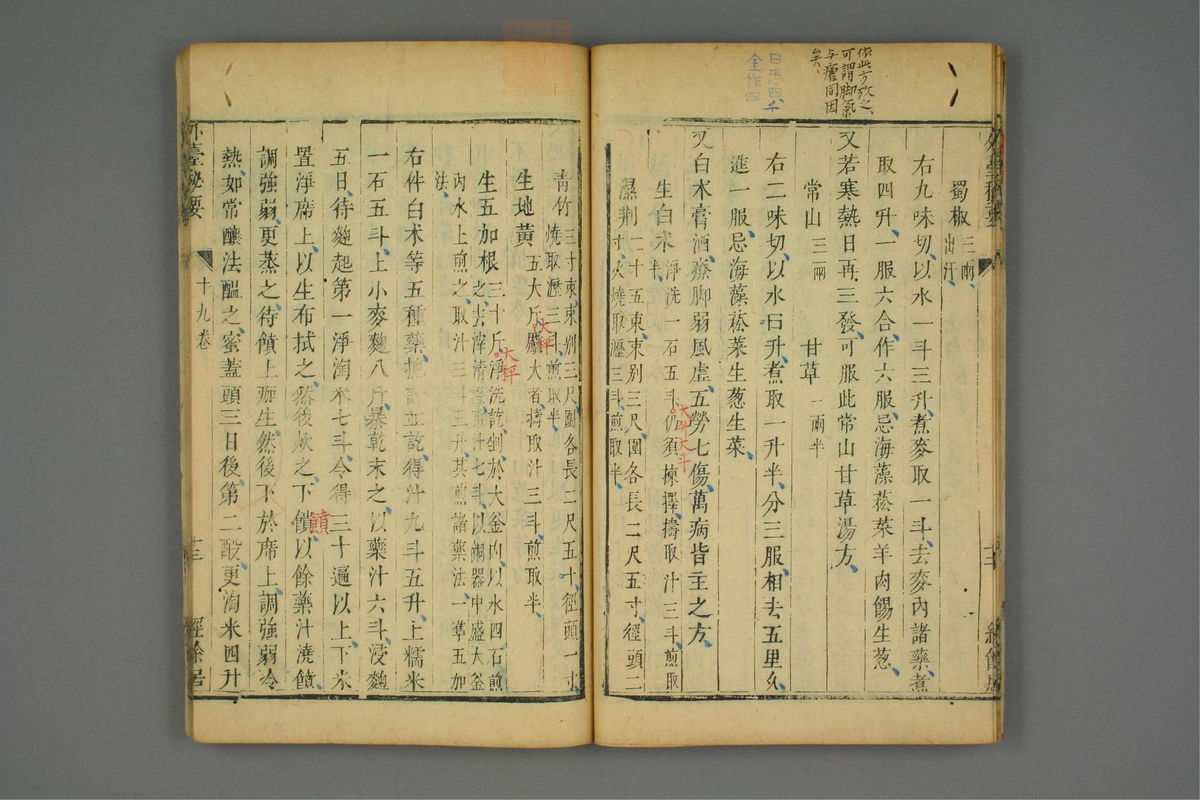 依此方攷之
可謂脚氣
与瘧同因
矣
日恐四、千
金作四
蜀椒三兩出汗
右九味切以水一斗三升煮麥取一斗去麥內諸藥煮
取四升一服六合作六服忌海藻菘菜羊肉餳生葱
又若寒熱日再三發可服此常山甘草湯方
常山三兩 甘草一兩半
右二味切以水曰升煮取一升半分三服相去五里久
進一服忌海藻菘菜生葱生菜
又白朮膏酒療脚弱風虛五勞七傷萬病皆主之方
生白朮淨洗一石五斗仍須揀擇擣取汁三斗煎取半
大斗大斗
濕荆二十五束束别三尺圍各長二尺五寸徑頭二寸火燒取瀝三斗煎取半
青竹三寸束束别三尺圍各長二尺五寸徑頭一寸燒取瀝三斗煎取半
生地黃五大斤麤大者擣取汁三斗煎取半
大秤
生五加根三十斤淨洗乾剉於大釜內以水四石煎之去滓清澄取汁七斗以銅器中盛大釜內水上煎之取汁三斗五升其煎諸藥法一準五加法
大秤
右件白朮等五種藥總計並乾得汁九斗五升上糯米
一石五斗上小麥麴八斤暴乾末之以藥汁六斗浸麴
五日待麴起第一淨淘米七斗令得三十遍以上下米
置淨席上以生布拭之然後炊之下饋以餘藥汁澆饋
饙
調強弱更蒸之待饋上痂生然後下於席上調強弱冷
熱如常釀法醞之蜜蓋頭三日後第二酘更淘米四升
外臺秘要 十九卷 十三 經餘居